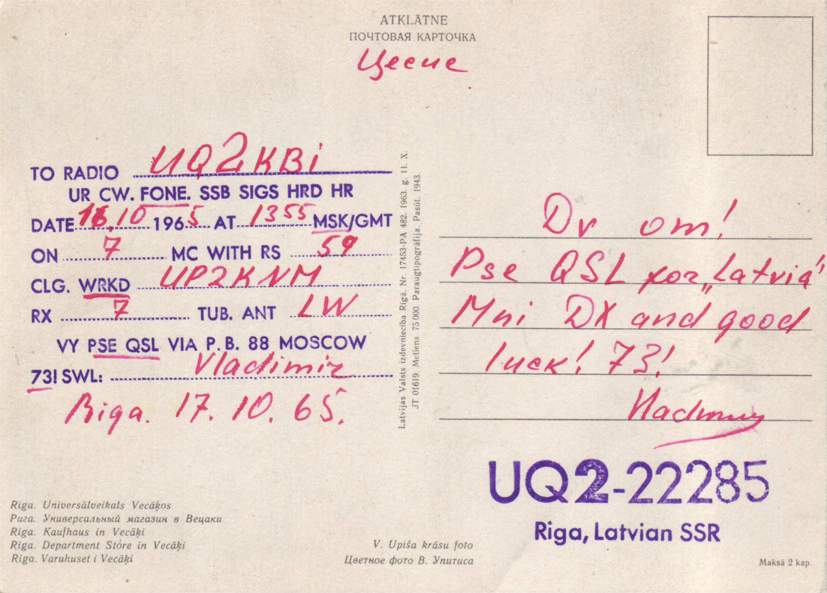 ATKLĀTNE
ПОЧТОВАЯ КАРТОЧКА
Цесис
TO RADIO UQ2KBI
UR CW. FONE. SSB SIGS HRD HR
DATE 16.10 1965 AT 1355 MSK/GMT
ON 7 MC WITH RS 59
CLG. WRKD UP2KNM
RX 7 TUB. ANT LW
VY PSE QSL VIA P. B. 88 MOSCOW
73! SWL: Vladimir
Riga. 17.10.65.
Latvijas Valsts izdevniecība Rīgā. Nr. 17453-PA 482. 1963. g. 11. X.
JT 01619. Metiens 75 000. Paraugtipogrāfija. Pasūt. 1943.
Dr om!
Pse QSL for „Latvia“
Mni DX and good
luck! 73!
UQ2-22285
Riga, Latvian SSR
Rīga. Universālveikals Vecāķos
Рига. Универсальный магазин в Вецаки
Riga. Kaufhaus in Vecāķi
Riga. Department Store in Vecāķi
Riga. Varuhuset i Vecāķi
V. Upīša krāsu foto
Цветное фото В. Упитиса
Maksā 2 kap.